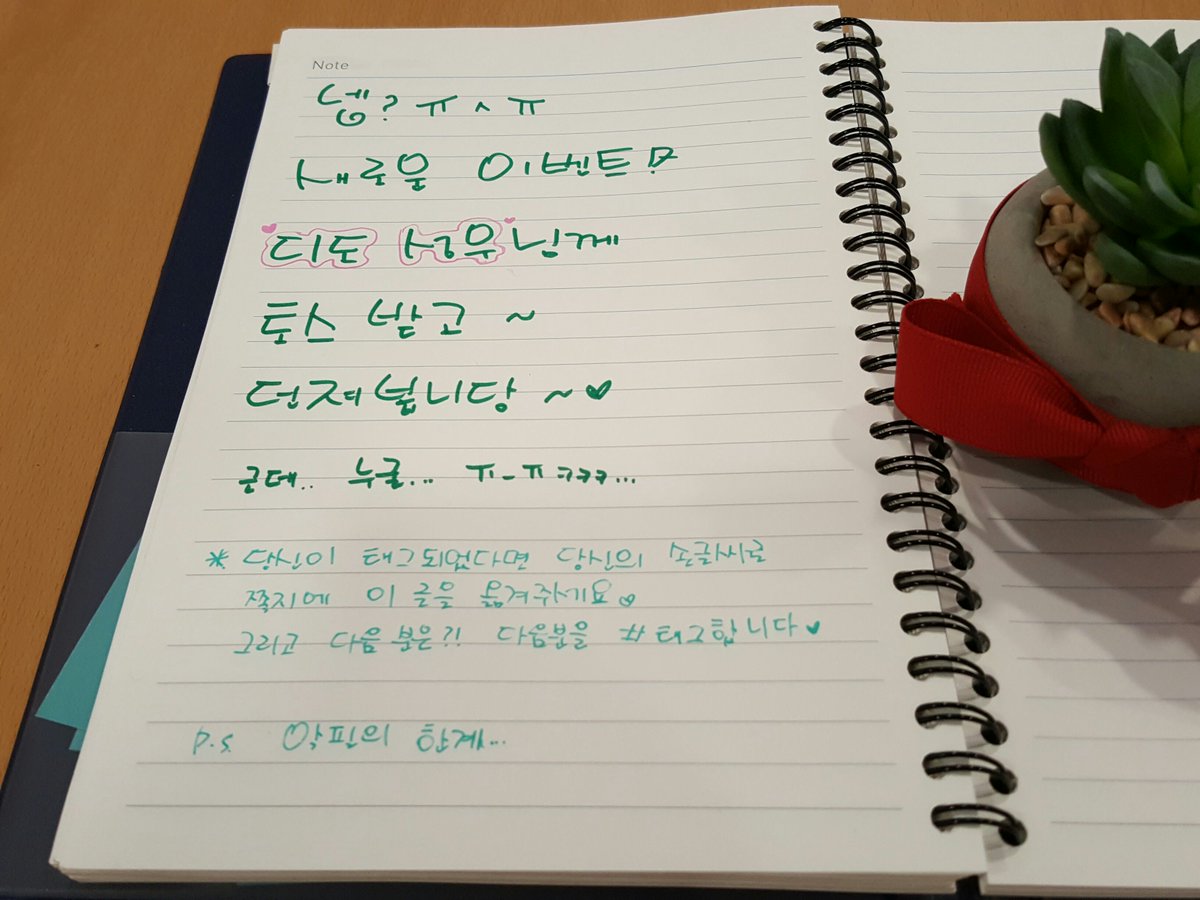 Note
넵? ㅠ^ㅠ
새로운 이벤트?
디도 성우님께
토스 받고 ~
던져봅니당 ~♥
근데.. 누굴... ㅠ-ㅠ ㅋㅋㅋ...
* 당신이 태그되었다면 당신의 손글씨로
쪽지에 이 글을 옮겨주세요♡
그리고 다음 분은?! 다음분을 #태그합니다♥
P.S 악필의 한계...